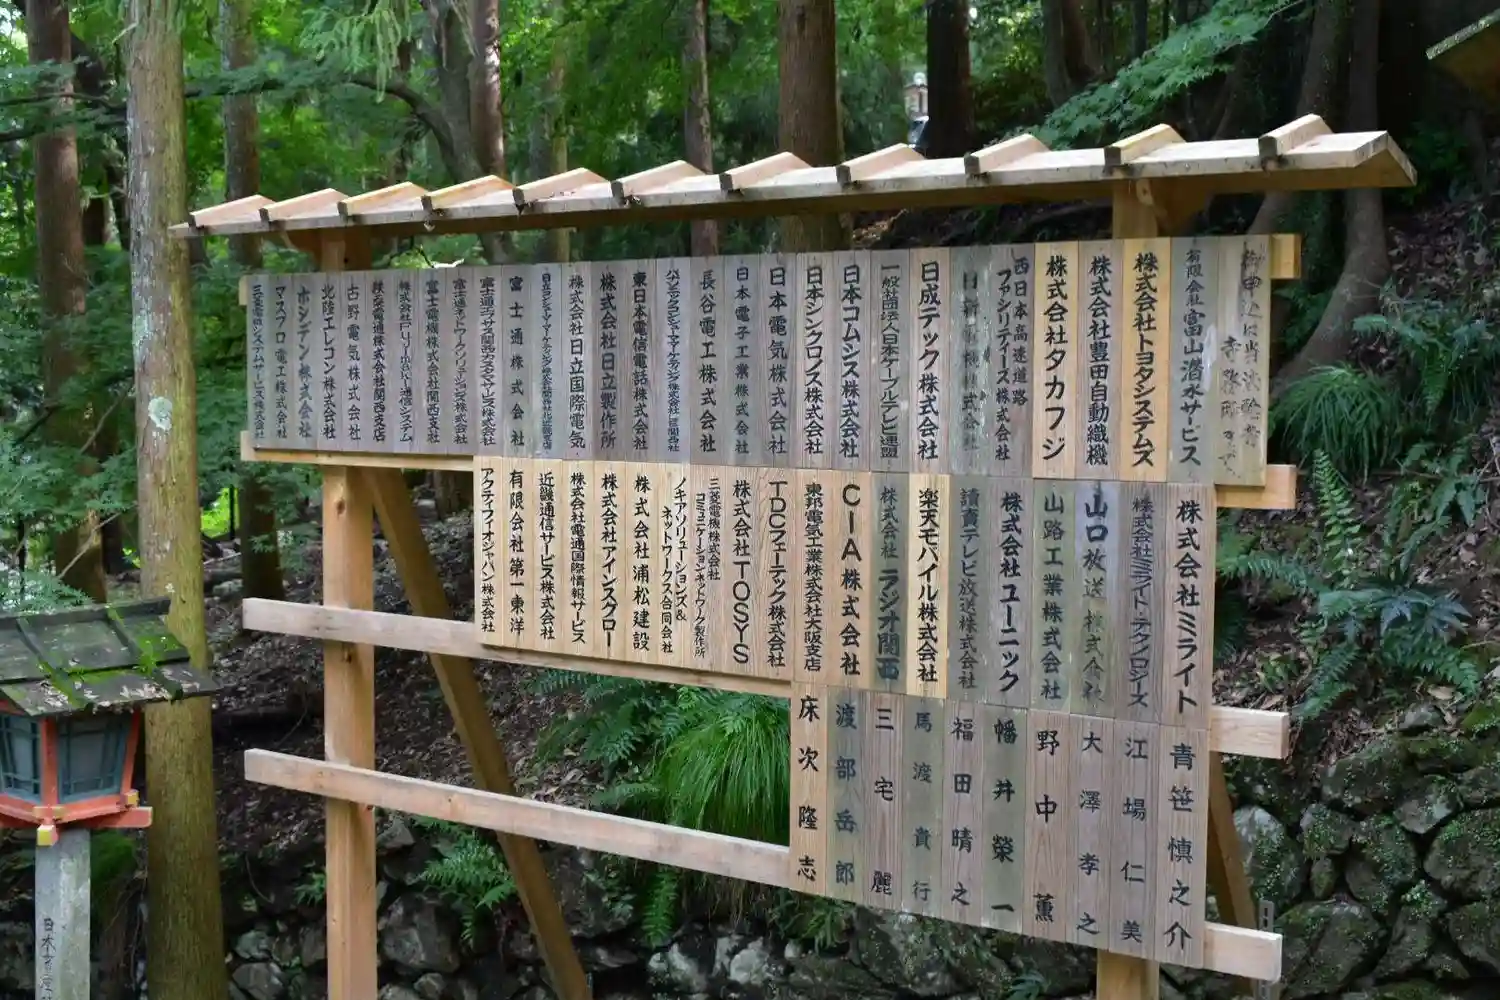 有限会社富山清水サービス
株式会社トヨタシステムズ
株式会社豊田自動織機
株式会社タカフジ
西日本高速道路
ファシリティーズ株式会社
日新電機株式会社
日成テック株式会社
一般社団法人日本ケーブルテレビ連盟
日本コムシス株式会社
日本シンクロノス株式会社
日本電気株式会社
日本電子工業株式会社
長谷電工株式会社
東日本電信電話株式会社
株式会社日立製作所
株式会社日立国際電気
富士通株式会社
富士通ネットワークソリューションズ株式会社
富士電機株式会社関西支社
株式会社電通関西支店
古野電気株式会社
北陸エレコン株式会社
ホシデン株式会社
マスプロ電工株式会社
三菱電機システムサービス株式会社
株式会社ミライト
株式会社ミライト・テクノロジーズ
山口放送株式会社
山路工業株式会社
株式会社ユーニック
讀賣テレビ放送株式会社
楽天モバイル株式会社
株式会社ラジオ関西
CIA株式会社
東邦電気工業株式会社大阪支店
TDCフェーテック株式会社
株式会社TOSYS
三菱電機株式会社
コミュニケーション・ネットワーク製作所
ノキアソリューションズ&
ネットワークス合同会社
株式会社浦松建設
株式会社アインスグロー
株式会社電通国際情報サービス
近畿通信サービス株式会社
有限会社第一東洋
アクティファイオジャパン株式会社
青笹慎之介
江場仁美
大澤孝之
野中薫
幡井榮一
福田晴之
馬渡貴行
三宅麗
渡部岳郎
床次隆志